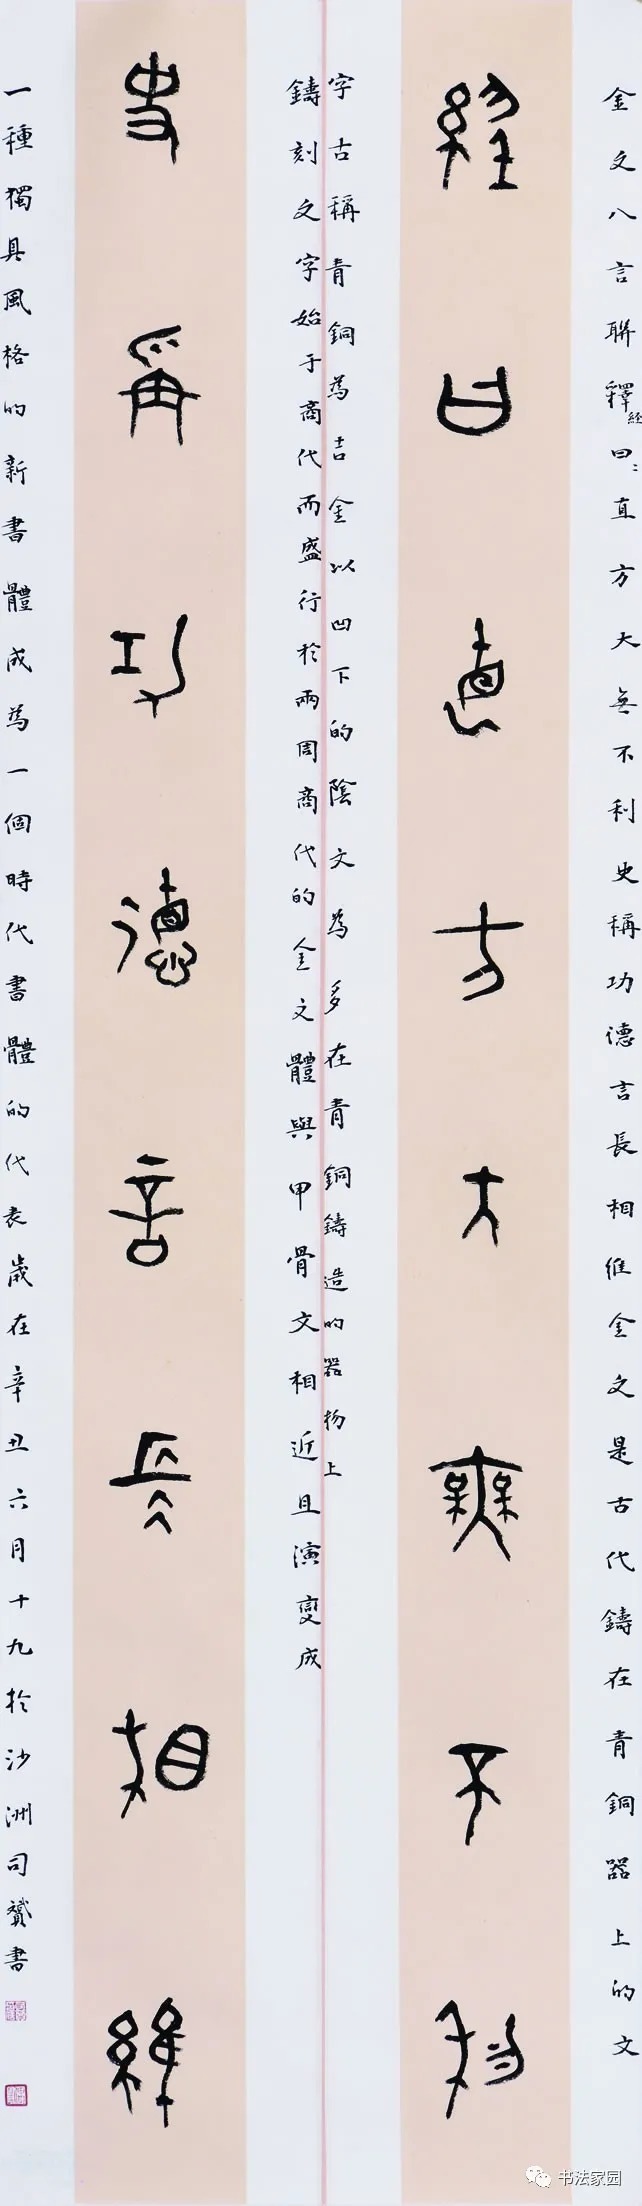 金文八言聯釋經曰〻直方大無不利史稱功德言長相維金文是古代鑄在青銅器上的文
經曰直方大無不利
字古稱青銅為吉金以凹下的陰文為多在青銅鑄造的器物上
鑄刻文字始于商代而盛行於兩周商代的金文體與甲骨文相近且演變成
史稱功德言長相維
一種獨具風格的新書體成為一個時代書體的代表歲在辛丑六月十九於沙洲司贇書
书法家园